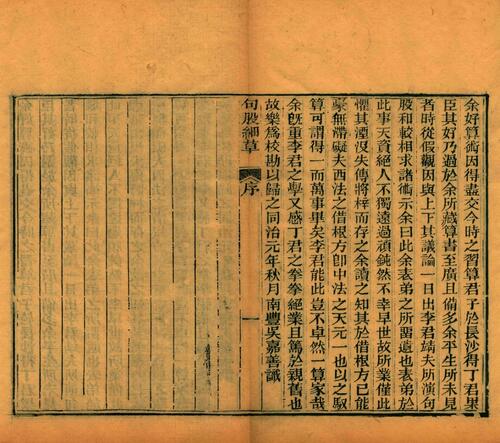 余好算術因得盡交今時之習算君子於長沙得丁君果
臣其好乃過於余所藏算書至廣且備多余平生所未見
者時從假觀因與上下其議論一日出李君結夫所演句
股和較相求諸術示余曰此余表弟之所留遺也表弟於
此事天資絕人不獨遠過頑鈍然不幸早世故所業僅此
懼其湮沒失傳將梓而存之余讀之知其於借根方已能
毫無滯礙夫西法之借根方卽中法之天元一也以之馭
算可謂得一而萬事畢矣李君能此豈不卓然一算家哉
余旣重李君之學又感丁君之拳拳絕業且篤於親舊也
故樂爲校勘以歸之同治元年秋月南豐吳嘉善識
句股細草
序
一